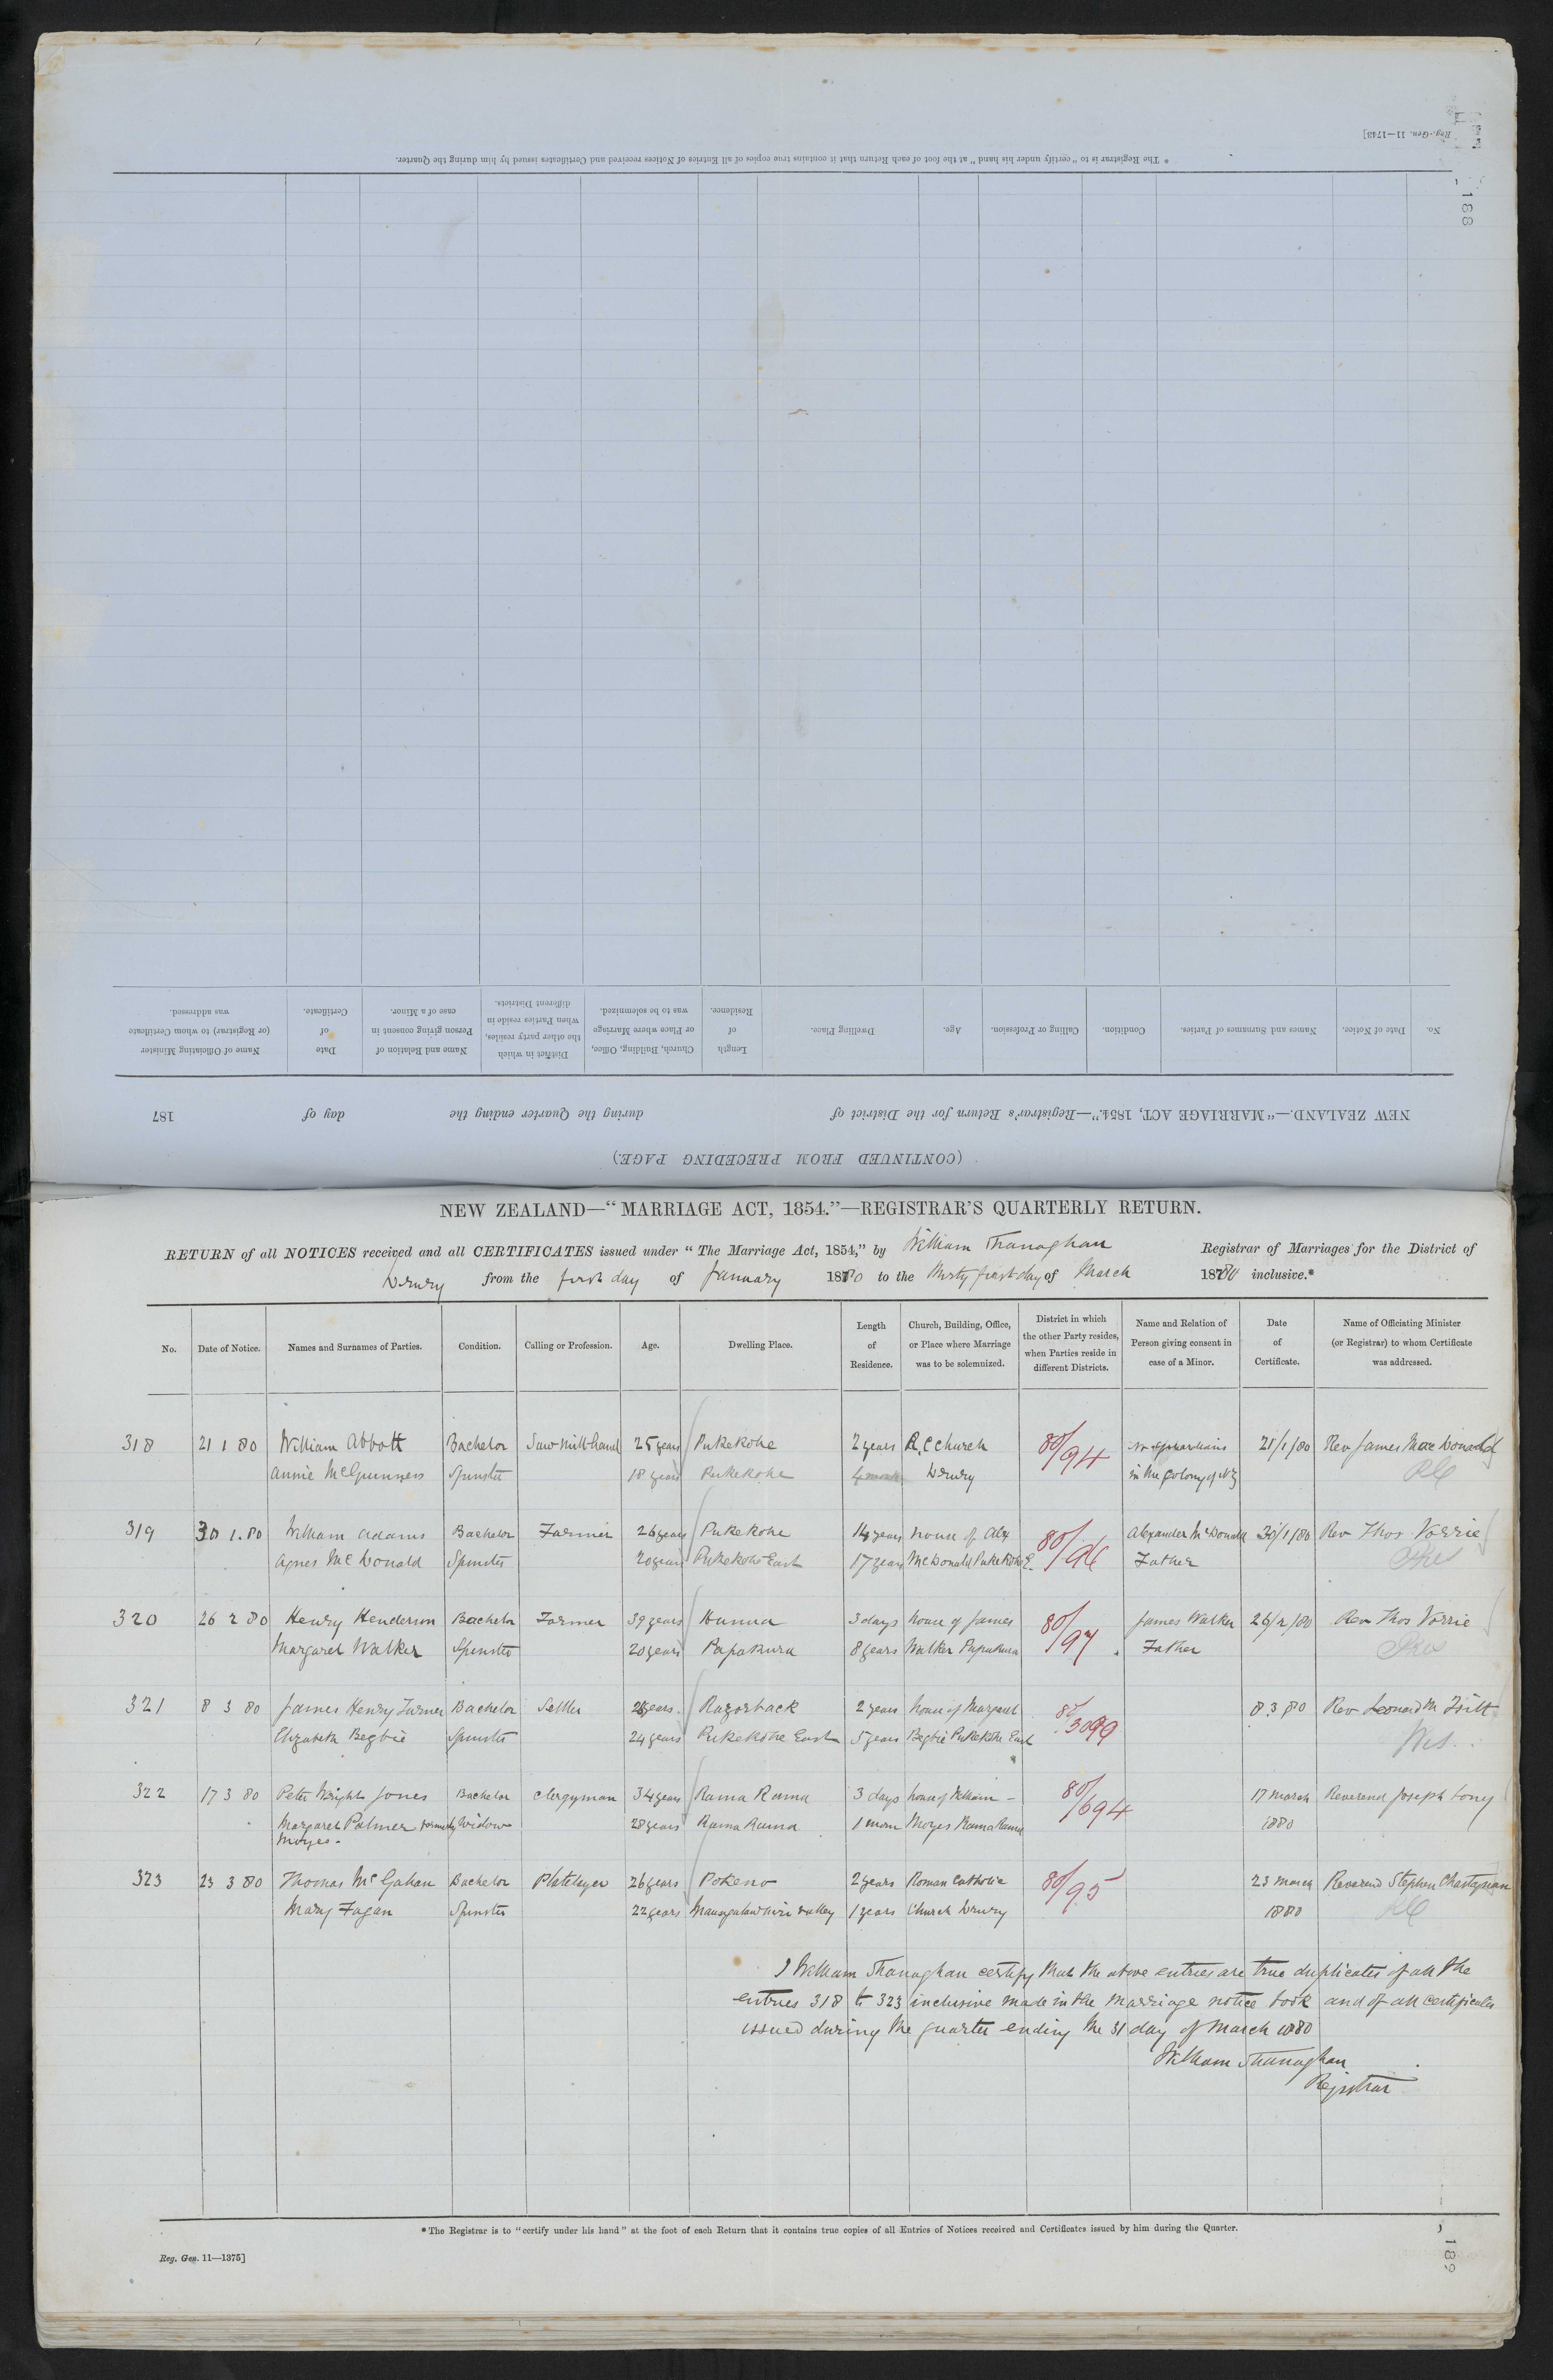 Reg.-Gen. 11—1743]
* The Registrar is to "certify under his hand" at the foot of each Return that it contains true copies of all Entries of Notices received and Certificates issued by him during the Quarter.
188
(CONTINUED FROM PRECEDING PAGE.)
NEW ZEALAND.—"MARRIAGE ACT, 1854."—Registrar's Return for the District of during the Quarter ending the day of 187
No. Date of Notice. Names and Surnames of Parties. Condition. Calling or Profession. Age. Dwelling Place. Length of Residence. Church, Building, Office, or Place where Marriage was to be solemnized. District in which the other party resides, when Parties reside in different Districts. Name and Relation of Person giving consent in case of a Minor. Date of Certificate. Name of Officiating Minister (or Registrar) to whom Certificate was addressed.
NEW ZEALAND—"MARRIAGE ACT, 1854."—REGISTRAR'S QUARTERLY RETURN.
RETURN of all NOTICES received and all CERTIFICATES issued under "The Marriage Act, 1854," by William Thanaghan Registrar of Marriages for the District of
Drury from the first day of January 1880 to the thirty first day of March 1880 inclusive.*
No. Date of Notice. Names and Surnames of Parties. Condition. Calling or Profession. Age. Dwelling Place. Length of Residence. Church, Building, Office, or Place where Marriage was to be solemnized. District in which the other Party resides, when Parties reside in different Districts. Name and Relation of Person giving consent in case of a Minor. Date of Certificate. Name of Officiating Minister (or Registrar) to whom Certificate was addressed.
318 21 1 80 William Abbott Bachelor Saw mill hand 25 years Pukekohe 2 years R.C Church 80/94 21/1/80 Rev James Mac Donald
Annie McGunness Spinster 18 years Pukekohe 4 months Drury in the Colony of NZ RC
319 30 1.80 William Adams Bachelor Farmer 26 years Pukekohe 14 years house of Alex 80/96 Alexander McDonald 30/1/80 Rev Thos Norrie
Agnes McDonald Spinster 20 years Pukekohe East 17 years McDonald Pukekohe E. Father Pres
320 26 2 80 Henry Henderson Bachelor Farmer 39 years Hunua 3 days house of James 80/97 James Walker 26/2/80 Rev Thos Norrie
Margaret Walker Spinster 20 years Papakura 8 years Walker Papakura Father Pres
321 8 3 80 James Henry Turner Bachelor Settler years Razorback 2 years house of Margaret 80/3099 8.3.80 Rev Leonard M
Elizabeth Begbie Spinster 24 years Pukekohe East 5 years Begbie Pukekohe East Wes.
322 17 3 80 Peter Wright Jones Bachelor Clergyman 34 years Rama Rama 3 days house of William 80/694 17 March Reverend Joseph Long
Margaret Palmer formerly Widow 28 years Rama Rama 1 Moyes Rama Rama 1880
Moyes.
323 23 3 80 Thomas McGahan Bachelor Platelayer 26 years Pokeno 2 years Roman Catholic 80/95 23 March Reverend Stephen
Mary Fagan Spinster 22 years valley 1 years Church Drury 1880 RC
I William Thanaghan certify that the above entries are true duplicates of all the
entries 318 to 323 inclusive made in the Marriage notice book and of all certificates
issued during the quarter ending the 31 day of March 1880
William Thanaghan
Registrar
* The Registrar is to "certify under his hand" at the foot of each Return that it contains true copies of all Entries of Notices received and Certificates issued by him during the Quarter.
Reg. Gen. 11—1375]
189